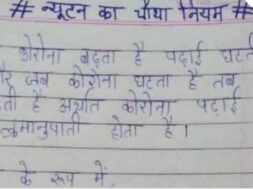 # न्यूटन का चौथा नियम #
कोरोना बढ़ता है पढ़ाई घटती
और जब कोरोना घटता है तब
है अर्थात कोरोना पढ़ाई
होता है।
के रूप में